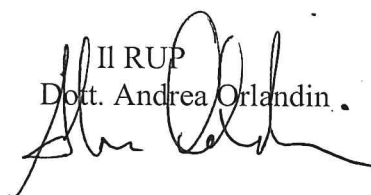 Il RUP
Dott. Andrea Orlandin